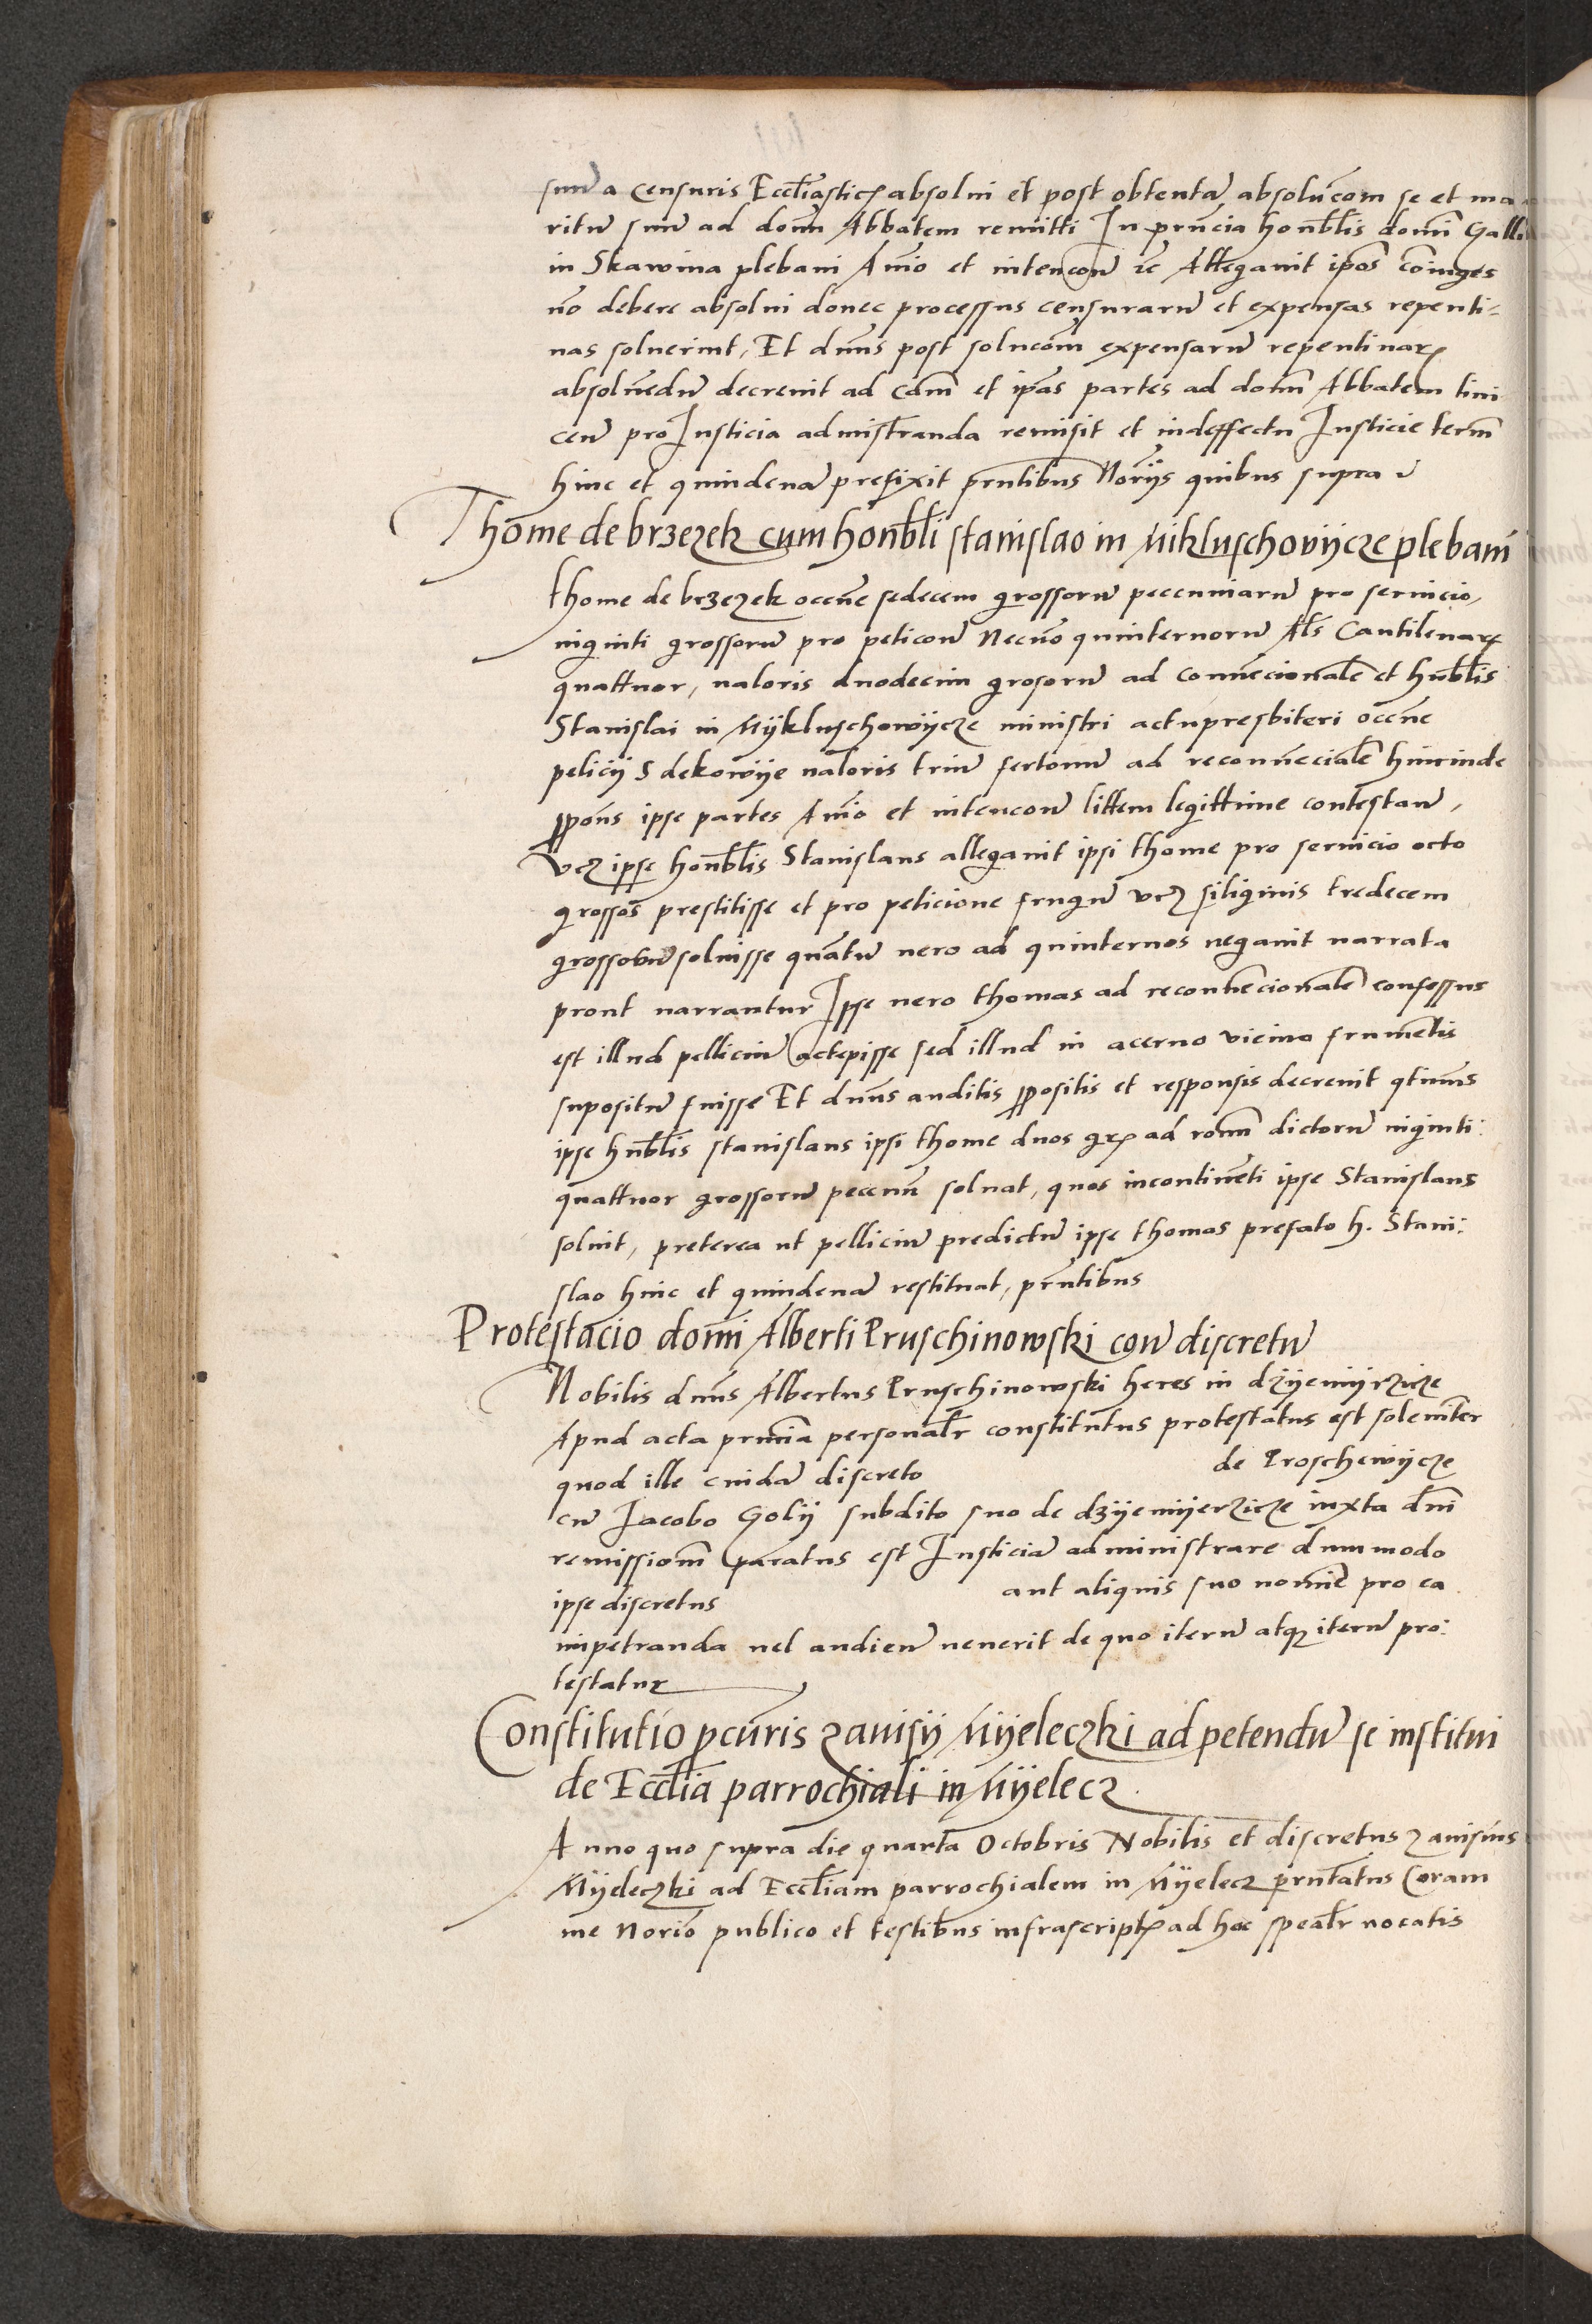 suu̅ a censuris Eccl̅iasticꝭ absolui et post obtenta̅ absoluc̅om se et ma
ritu̅ suu̅ ad dom̅u̅ Abbatem remitti In pn̅cia honor̅blis dom̅i Galli
in Skawina plebani Anīo et intenc̅on̅ ꝛc̅ Allegauit ip̅os co̅iuges
no̅ debere absolui donec processus censuraru̅ et expensas repenti-
nas soluerint, Et dn̅us post soluc̅om expensaru̅ repentinarꝝ
absolue̅du̅ decreuit ad ca̅m et ip̅as partes ad dom̅ Abbatem tini
cen̅ pro Iusticia administranda remisit et indeffectu Iusticie term̅
hinc et quindena̅ prefixit prn̅tibus Nor̅ijs quibus supra
Thome de brzezek cum honor̅bli stanislao in Mikluschovijcze plebani
thome de brzezek occ̅ne sedecem grossoru̅ peccuniaru̅ pro seruicio,
uiginti grossoru̅ pro peticon̅ Necno̅ quinternoru̅ Al̅s Cantilenarꝝ
quattuor, ualoris duodecim grosoru̅ ad conue̅cionale̅ et hn̅blis
Stanislai in Mijkluschowijcze ministri actu presbiteri occ̅ne
pelicij Sdekowije ualoris triu̅ fertonu̅ ad reconue̅ciale̅ hincinde
ꝓpon̅s ipse partes Anīo et intencon̅ littem legittime contestan̅,
vcꝫ ipse honor̅blis Stanislaus allegauit ipsi thome pro seruicio octo
grossos prestitisse et pro peticione frugu̅ vcꝫ siliginis tredecem
grossoru̅ soluisse qua̅tu̅ uero ad quinternos negauit narrata
prout narrantur Ipse uero thomas ad reconue̅cionale̅ confessus
est illud pelliciu̅ accepisse sed illud in aceruo vicino frume̅tis
supositu̅ fuisse Et dn̅us auditis ꝓpositis et responsis decreuit qtin̅us
ipse hn̅blis stanislaus ipsi thome duos grꝭ ad ron̅m dictoru̅ uiginti
quattuor grossoru̅ peccun̅ soluat, quos incontine̅ti ipse Stanislaus
soluit, preterea ut pelliciu̅ predictu̅ ipse thomas prefato h. Stani:
slao hinc et quindena̅ restituat, prn̅tibus
Protestacio dom̅i Alberti Pruschinowski con̅ discretu̅
Nobilis dn̅us Albertus Pruschinowski heres in dzijemijrzicze
Apud acta prn̅cia personal̅r constitutus protestatus est solem̅iter
quod ille cuida̅ discreto de Proschewijcze
cu̅ Iacobo Golij subdito suo de dzijemijerzicze iuxta dn̅i
remission̅ paratus est Iusticia̅ administrare dummodo
ipse discretus aut aliquis suo nomīe pro ea
impetranda uel audien̅ uenerit de quo iteru̅ atqꝫ iteru̅ pro:
testatur
Constitutio ꝓcuris zauisij Mijeleczki ad petendu̅ se institui
de Eccl̅ia parrochiali in Mijelecz
Anno quo supra die quarta Octobris Nobilis et discretus zauisius
Mijeleczki ad Eccl̅iam parrochialem in Mijelecz prn̅tatus Coram
me Nor̅io publico et testibus infrascriptꝭ ad hoc speal̅r uocatis